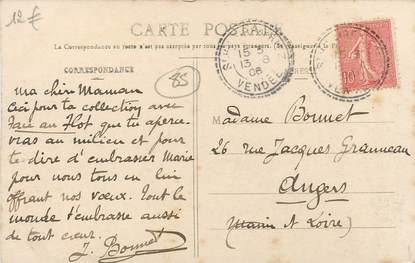 12 €
CARTE POSTALE
La Correspondance au recto n'est pas acceptée par tous les pays étrangers. (Se renseigner à la Poste)
CORRESPONDANCE
85
15
13 8
06
VENDEE
10
Ma chère Maman
Ceci pour ta collection avec
Face au Flot que tu aperce-
vras au milieu et pour
te dire d'embrasser Marie
pour nous tous en lui
offrant nos vœux. Tout le
monde t'embrasse aussi
de tout cœur.
J. Bonnet
Madame Bonnet
26 rue Jacques Granneau
Angers
(Maine et Loire)